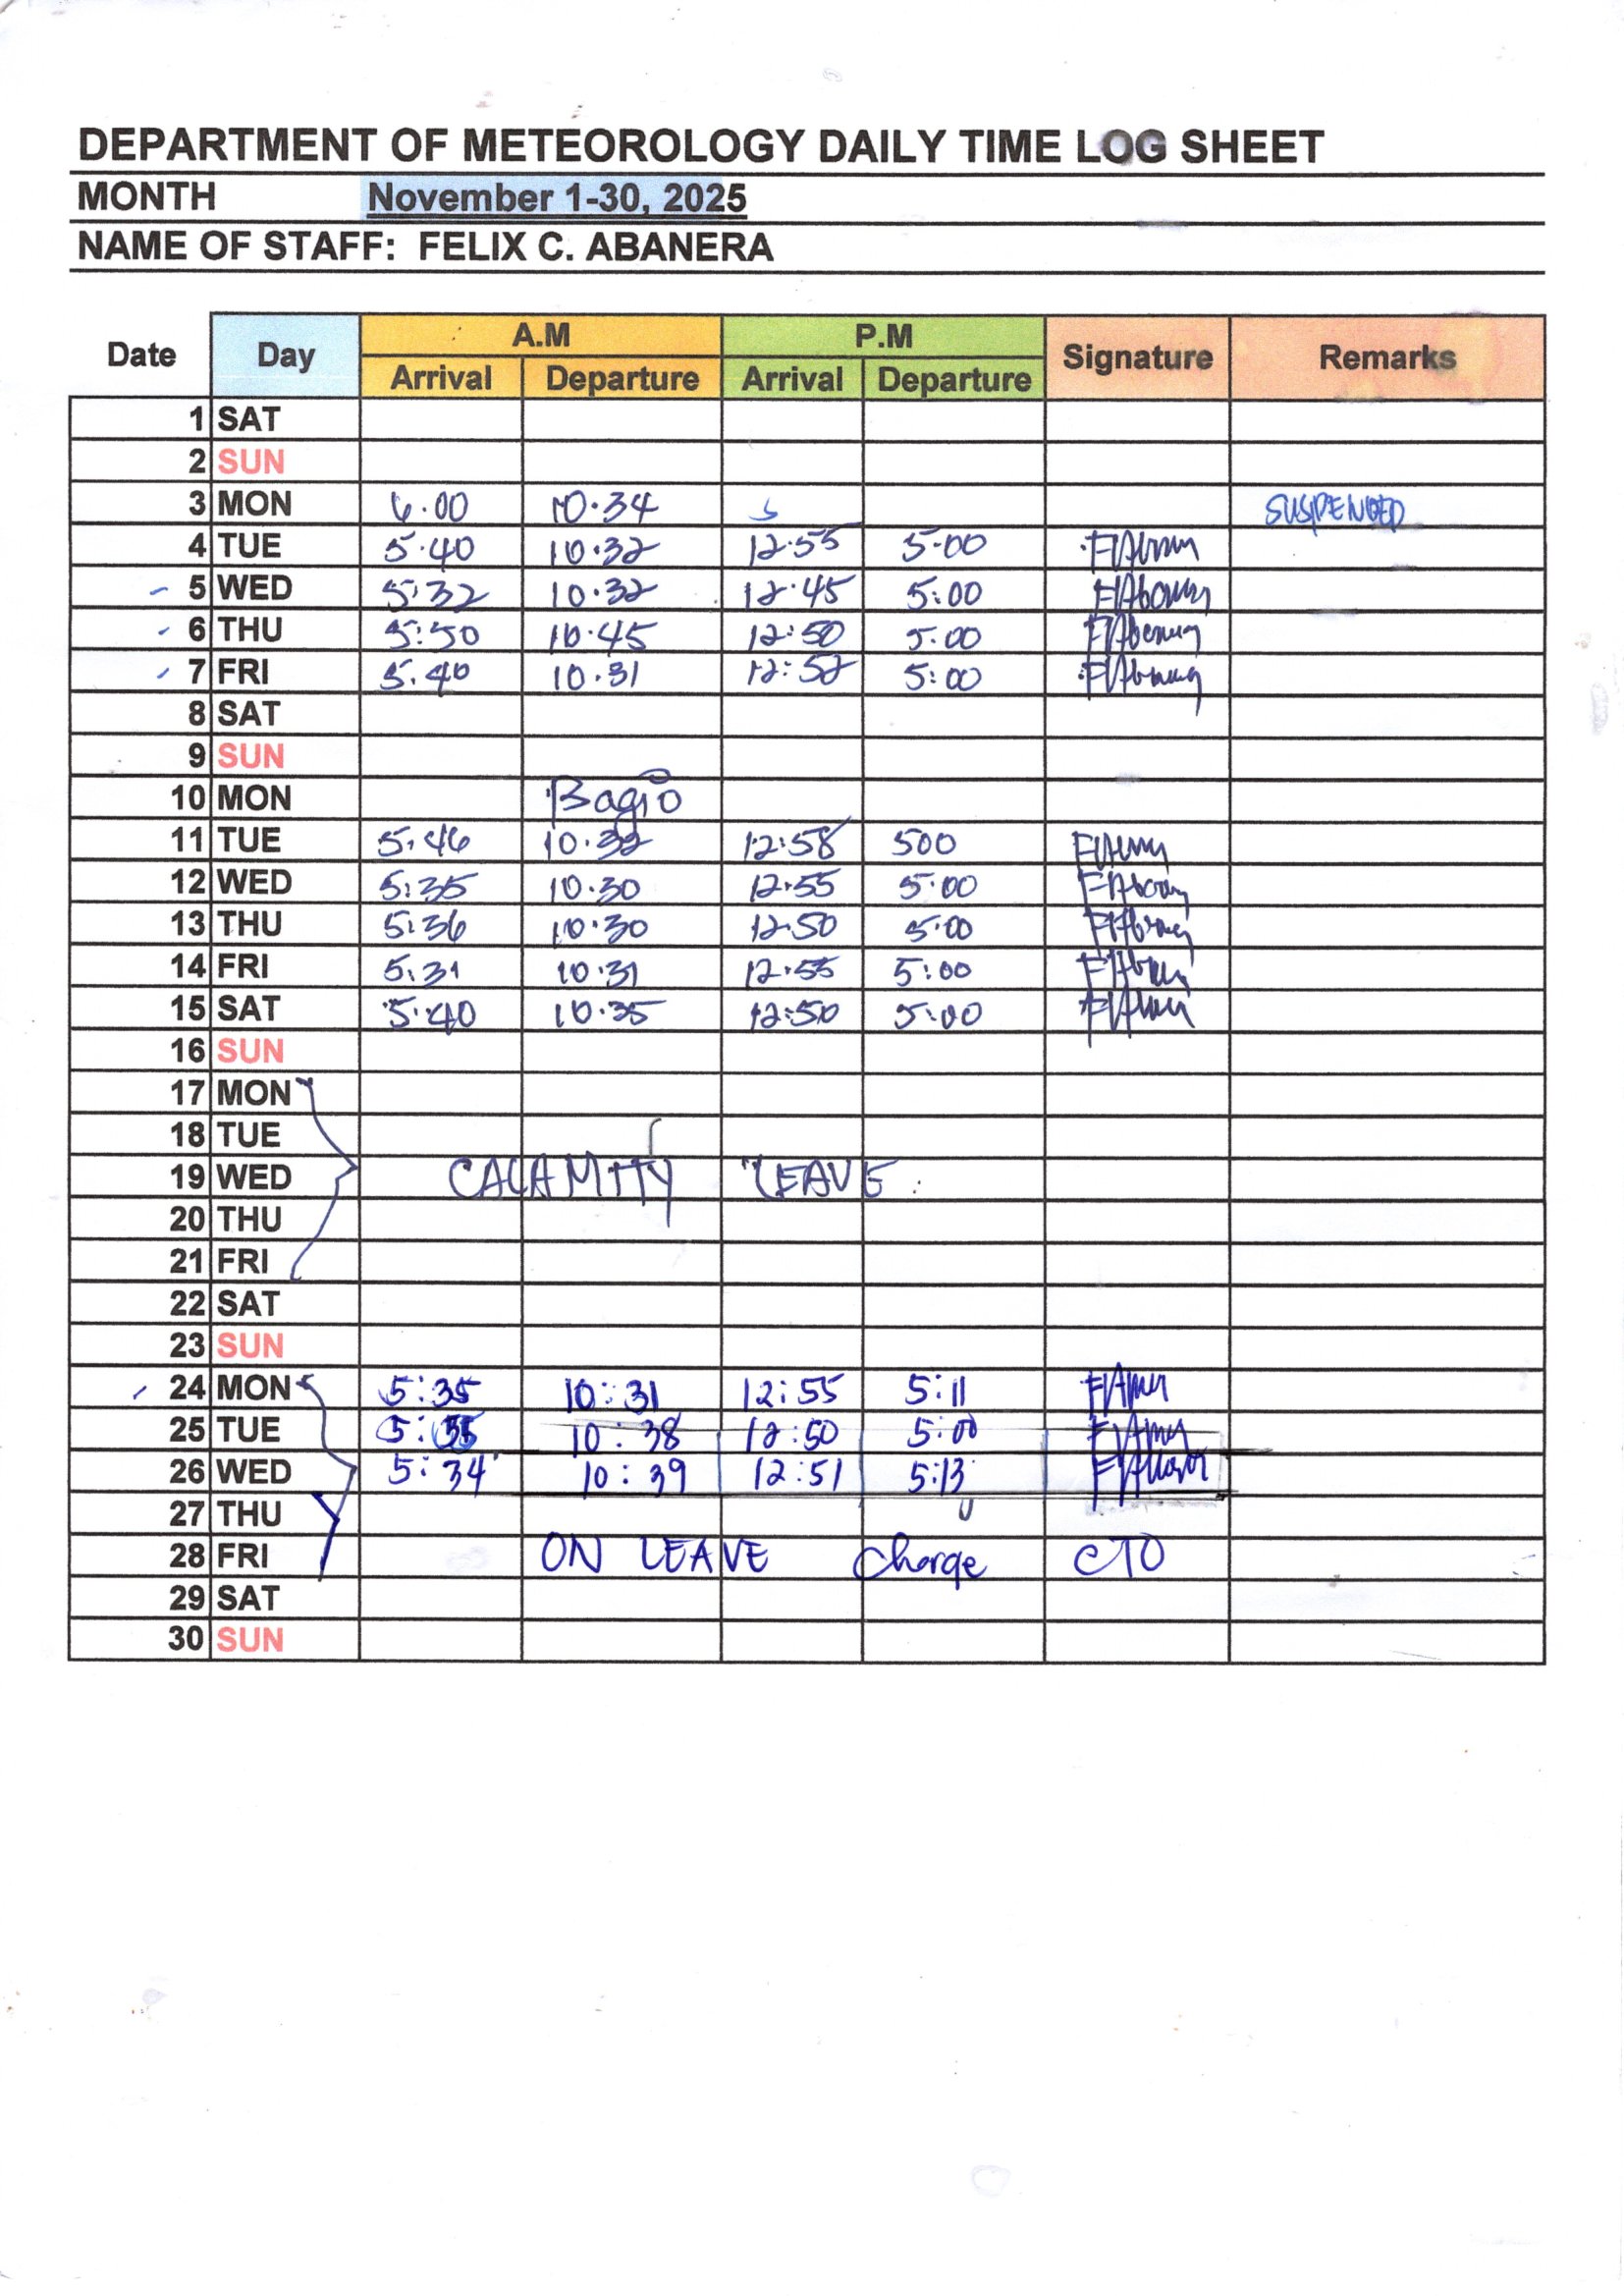 DEPARTMENT OF METEOROLOGY DAILY TIME LOG SHEET
MONTH November 1-30, 2025
NAME OF STAFF: FELIX C. ABANERA
Date Day A.M P.M Signature Remarks
Arrival Departure Arrival Departure
1 SAT
2 SUN
3 MON 6.00 10.34 SUSPENDED
4 TUE 5.40 10.32 12.55 5.00
5 WED 5:32 10.32 12.45 5:00
6 THU 5:50 10.45 12:50 5.00
7 FRI 5.40 10.31 12:52 5:00
8 SAT
9 SUN
10 MON Bagio
11 TUE 5.46 10.32 12:58 500
12 WED 5:35 10.30 12.55 5.00
13 THU 5:36 10.30 12.50 5.00
14 FRI 5.31 10.31 12.55 5:00
15 SAT 5.40 10.35 12:50 5:00
16 SUN
17 MON
18 TUE
19 WED CALAMITY LEAVE
20 THU
21 FRI
22 SAT
23 SUN
24 MON 5:35 10:31 12:55 5:11
25 TUE 10:38 12:50 5:00
26 WED 5:34 10:39 12:51 5:13
27 THU
28 FRI ON LEAVE Charge CTO
29 SAT
30 SUN